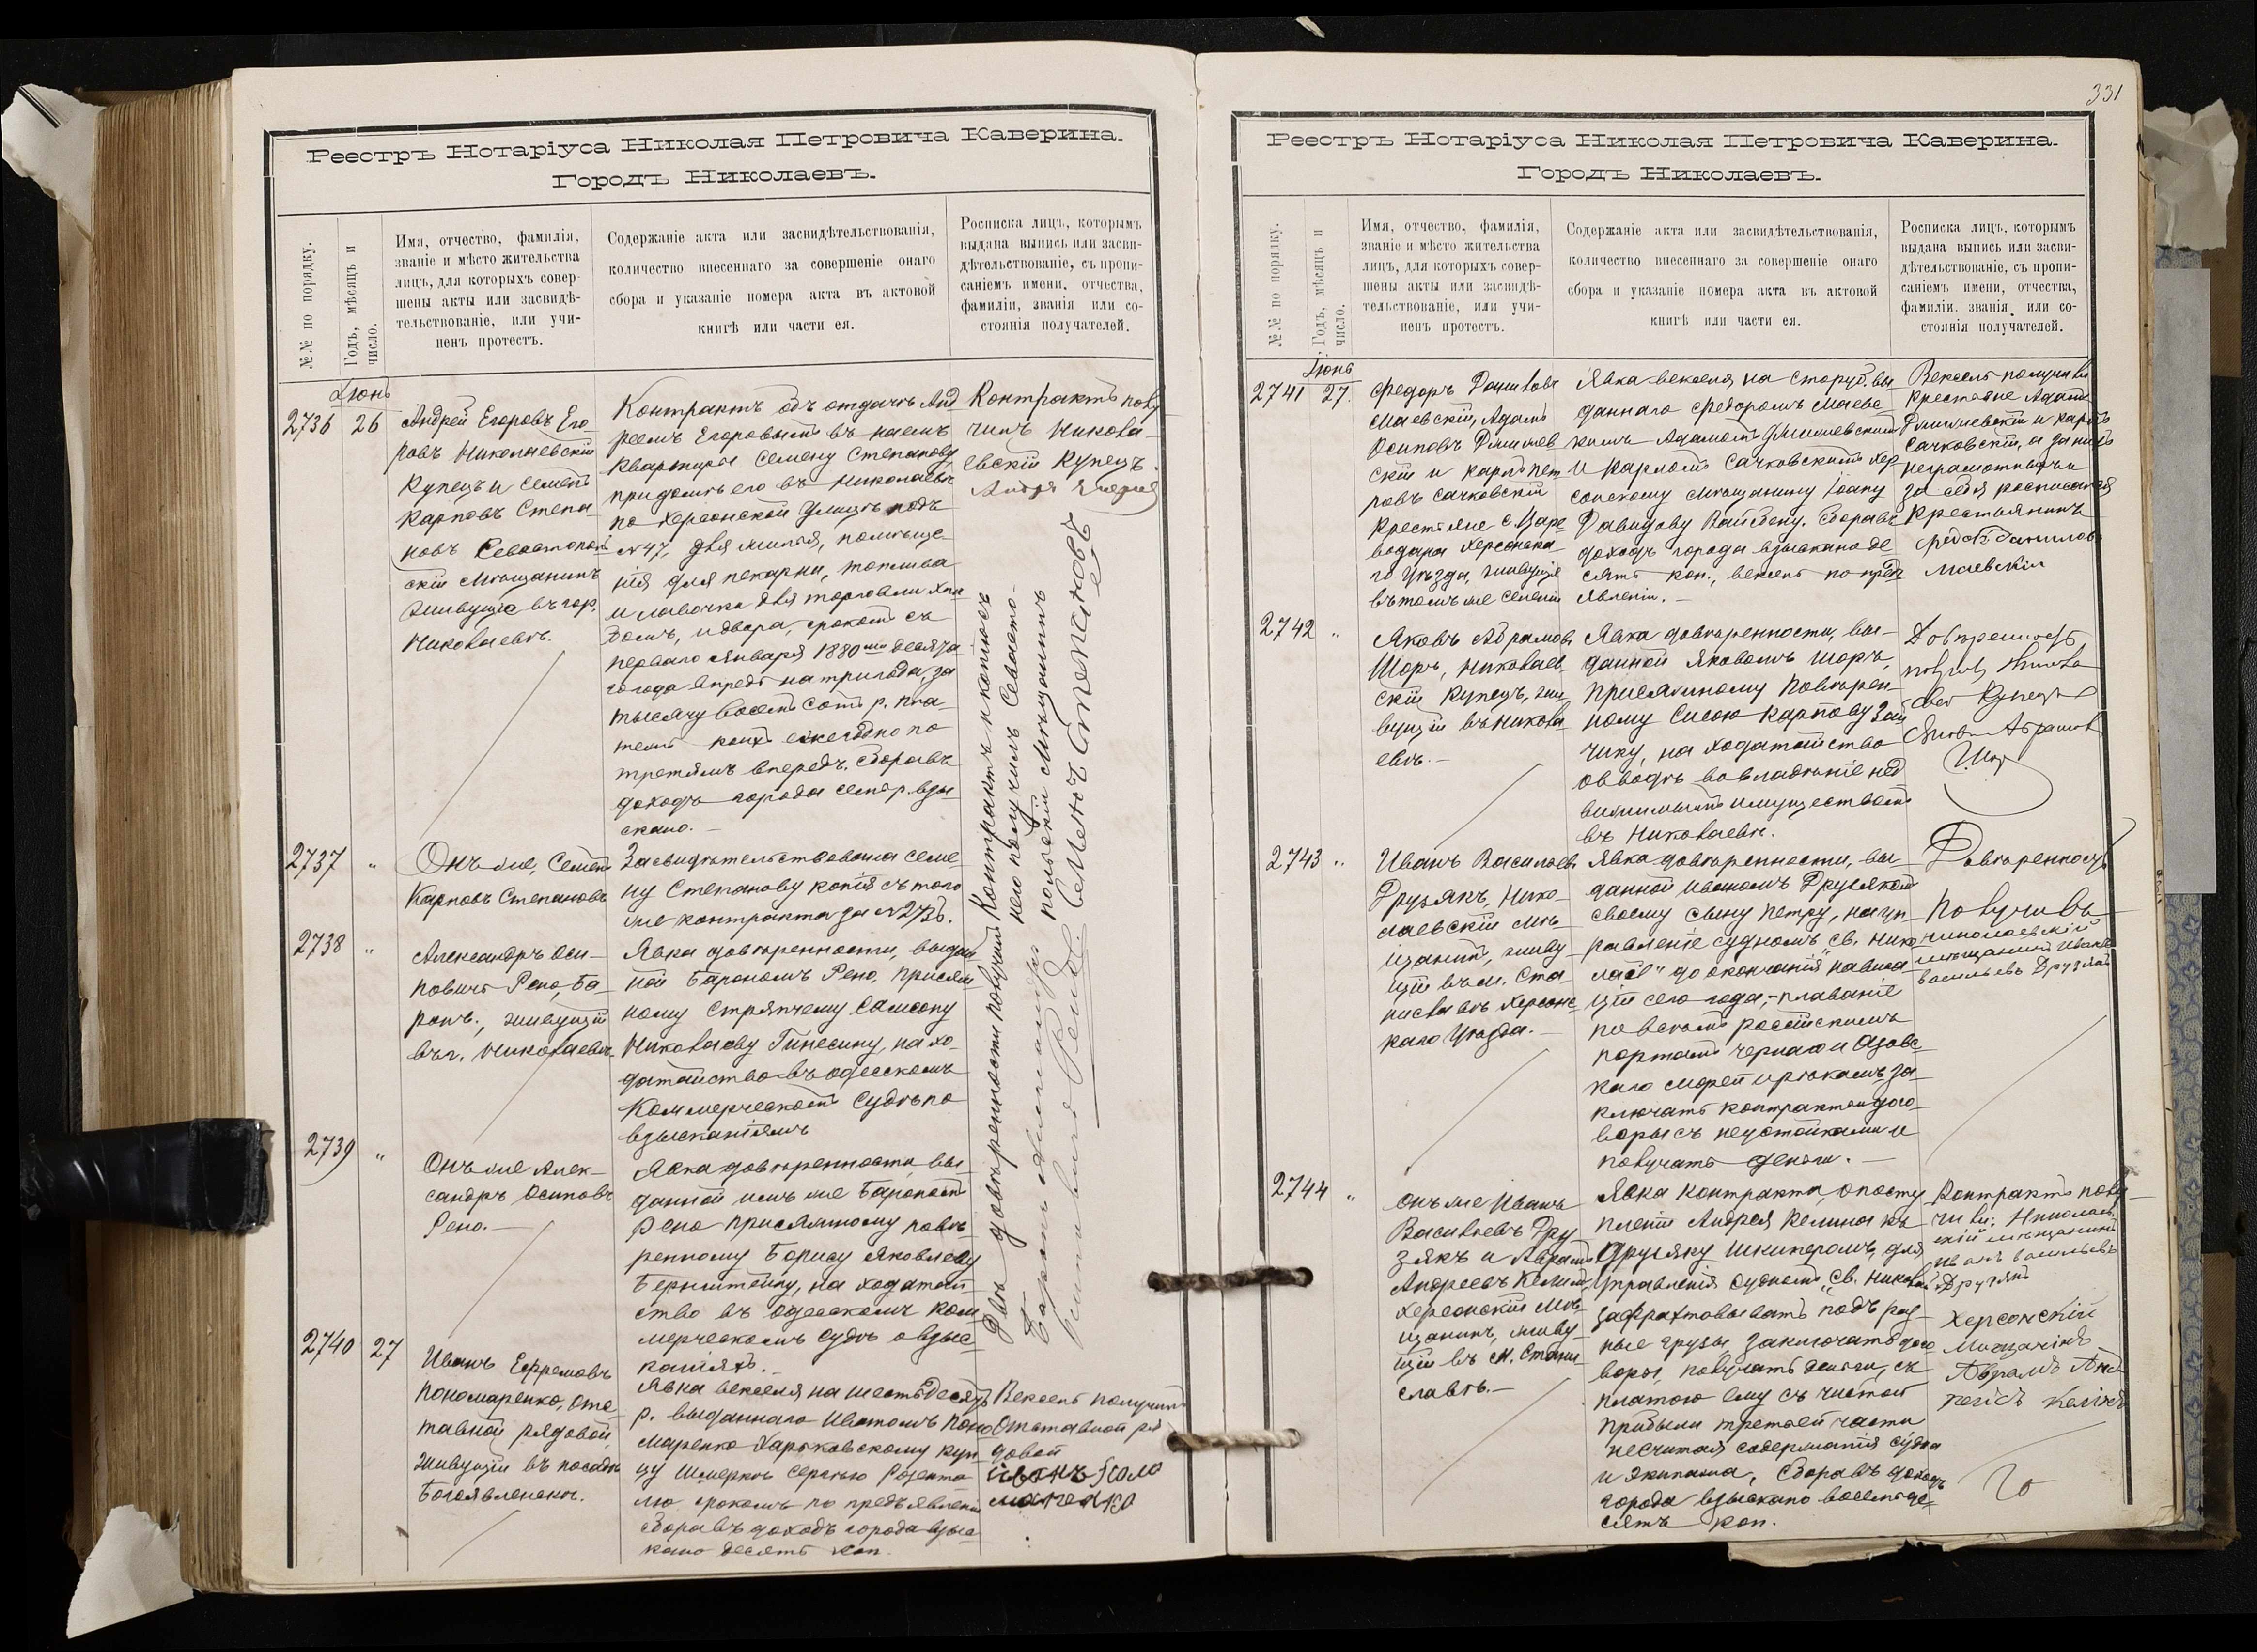 Реестръ Нотаріуса Николая Петровича Каверина.
Городъ Николаевъ.
№№ по порядку.
Годъ, мѣсяцъ и
число.
Имя, отчество, фамилія,
званіе и мѣсто жительства
лицъ, для которыхъ совер-
шены акты или засвидѣ-
тельствованіе, или учи-
ненъ протестъ.
Содержаніе акта или засвидѣтельствованія,
количество внесеннаго за совершеніе онаго
сбора и указаніе номера акта въ актовой
книгѣ или части ея.
Росписка лицъ, которымъ
выдана выпись или засви-
дѣтельствованіе, съ пропи-
саніемъ имени, отчества,
фамиліи, званія или со-
стоянія получателей.
Іюнь
2736 26
Андрей Егоровъ Его-
ровъ Николаевскій
Купецъ и Семенъ
Карповъ Степа-
новъ Севастополь
скій Мѣщанинъ
живущіе въ гор.
Николаевѣ.
Контрактъ объ отдачѣ Анд
реемъ Егоровымъ въ наемъ
квартиры Семену Степанову
при домѣ его въ Николаевѣ
по Херсонской улицѣ подъ
№ 47, для житья, помѣще-
нія для пекарни, топлива
и лавочки для торговли хлѣ
бомъ, и двора, срокомъ съ
перваго Января 1880
года впредь на три года, за
тысячу восемь сотъ р. пла-
тежъ коихъ ежегодно по
третямъ впередъ. Сбора въ
доходъ города семь р. взы-
скано.
Контрактъ полу
чилъ Никола-
евскій Купецъ
2737 „
Онъ же, Семенъ
Карповъ Степановъ
Засвидѣтельствована Семе
ну Степанову копія съ того
же контракта за № 2736.
Контрактъ и копію съ
него получилъ Севасто-
польскій Мѣщанинъ
Семенъ Степановъ
2738 „
Александръ Оси-
повичъ Рено, Ба-
ронъ, живущій
въ г. Николаевѣ
Явка довѣренности, выдан
ной Барономъ Рено, присяж
ному Стряпчему Самсону
Николаеву Гинесину, на хо-
датайство въ Одесскомъ
Коммерческомъ Судѣ по
взысканіямъ
2739 „
Онъ же Алек-
сандръ Осиповъ
Рено.
Явка довѣренности вы-
данной имъ же Барономъ
Рено присяжному повѣ
ренному Борису Яковлеву
Бернштейну, на ходатай
ство въ Одесскомъ Ком
мерческомъ Судѣ о взыс-
каніяхъ.
Двѣ довѣренности получилъ
Баронъ Александръ
Осиповичъ Рено
2740 27
Иванъ Ефремовъ
Пономаренко, отс-
тавной рядовой,
живущій въ посадѣ
Богоявленскѣ.
Явка векселя на шестьдесятъ
р. выданнаго Иваномъ Поно
маренко Харьковскому куп
цу Шмеркѣ Розента
лю срокомъ по предъявленіи
сбора въ доходъ города взыс-
кано десять коп.
Вексель получилъ
Отставной ря
довой
Иванъ Поно
маренко
331
Реестръ Нотаріуса Николая Петровича Каверина.
Городъ Николаевъ.
№№ по порядку.
Годъ, мѣсяцъ и
число.
Имя, отчество, фамилія,
званіе и мѣсто жительства
лицъ, для которыхъ совер-
шены акты или засвидѣ-
тельствованіе, или учи-
ненъ протестъ.
Содержаніе акта или засвидѣтельствованія,
количество внесеннаго за совершеніе онаго
сбора и указаніе номера акта въ актовой
книгѣ или части ея.
Росписка лицъ, которымъ
выдана выпись или засви-
дѣтельствованіе, съ пропи-
саніемъ имени, отчества,
фамиліи, званія или со-
стоянія получателей.
Іюнь
2741 27.
Федоръ Даниловъ
Маевскій, Адамъ
Осиповъ
скій и Карлъ Пет
ровъ Сачковскій
Крестьяне с. Царе
водара Херсонска-
го Уѣзда, живущіе
въ томъ же селеніи
Явка векселя на сто руб. вы
даннаго Федоромъ Маевс-
кимъ Адамомъ
и Карломъ Сачковскимъ Хер
сонскому мѣщанину Іоану
Давидову Вайсбену. Сбора въ
доходъ города взыскано де
сять коп., вексель по пред
явленіи.
Вексель получили
Крестьяне Адамъ
и Карлъ
Сачковскій, а за нихъ
неграмотныхъ и
за себя росписался
Крестьянинъ
Федоръ Даниловъ
Маевскій
2742 „
Яковъ Абрамовъ
Шоръ, Николаев
скій Купецъ, жи
вущій въ Никола
евѣ.
Явка довѣренности, вы-
данной Яковомъ Шоръ,
Присяжному Повѣрен-
ному Сисою Карпову Зай
чику, на ходатайство
о вводѣ во владѣніе нед
вижимымъ имуществомъ
въ Николаевѣ.
Довѣренность
получилъ Никола
евск Купецъ
Яковъ Абрамовъ
Шоръ
2743 „
Иванъ Васильевъ
Друзякъ, Нико-
лаевскій мѣ-
щанинъ, живу
щій въ м. Ста
ниславѣ Херсонс
каго Уѣзда.
Явка довѣренности, вы-
данной Иваномъ Друзякомъ
своему сыну Петру, на уп-
равленіе судномъ „Св. Нико
лай" до окончанія навига-
ціи сего года, - плаваніе
по всѣмъ россійскимъ
портамъ Чернаго и Азовс-
каго морей и рѣкамъ, за-
ключать контракты и дого-
воры съ неустойками и
получать деньги.
Довѣренность
Получилъ
Николаевскій
мѣщанинъ Иванъ
Васильевъ Друзякъ
2744 „
Онъ же Иванъ
Васильевъ Дру
зякъ и Авраамъ
Андреевъ Келинъ
Херсонскій Мѣ-
щанинъ, живу-
щій въ м. Стани
славѣ.
Явка контракта, о посту
пленіи Андрея Келина къ
Друзяку Шкиперомъ, для
управленія судномъ „Св. Николай"
зафрахтовывать подъ раз-
ные грузы, заключать дого
воры, получать деньги, съ
платою ему съ чистой
прибыли третьей части
не считая содержанія судна
и экипажа. Сбора въ доходъ
города взыскано восемьде-
сятъ коп.
Контрактъ полу-
чили: Николаев
скій мѣщанинъ
Иванъ Васильевъ
Друзякъ
Херсонскій
Мищанінъ
Аврамъ Анд
реівъ Келінъ